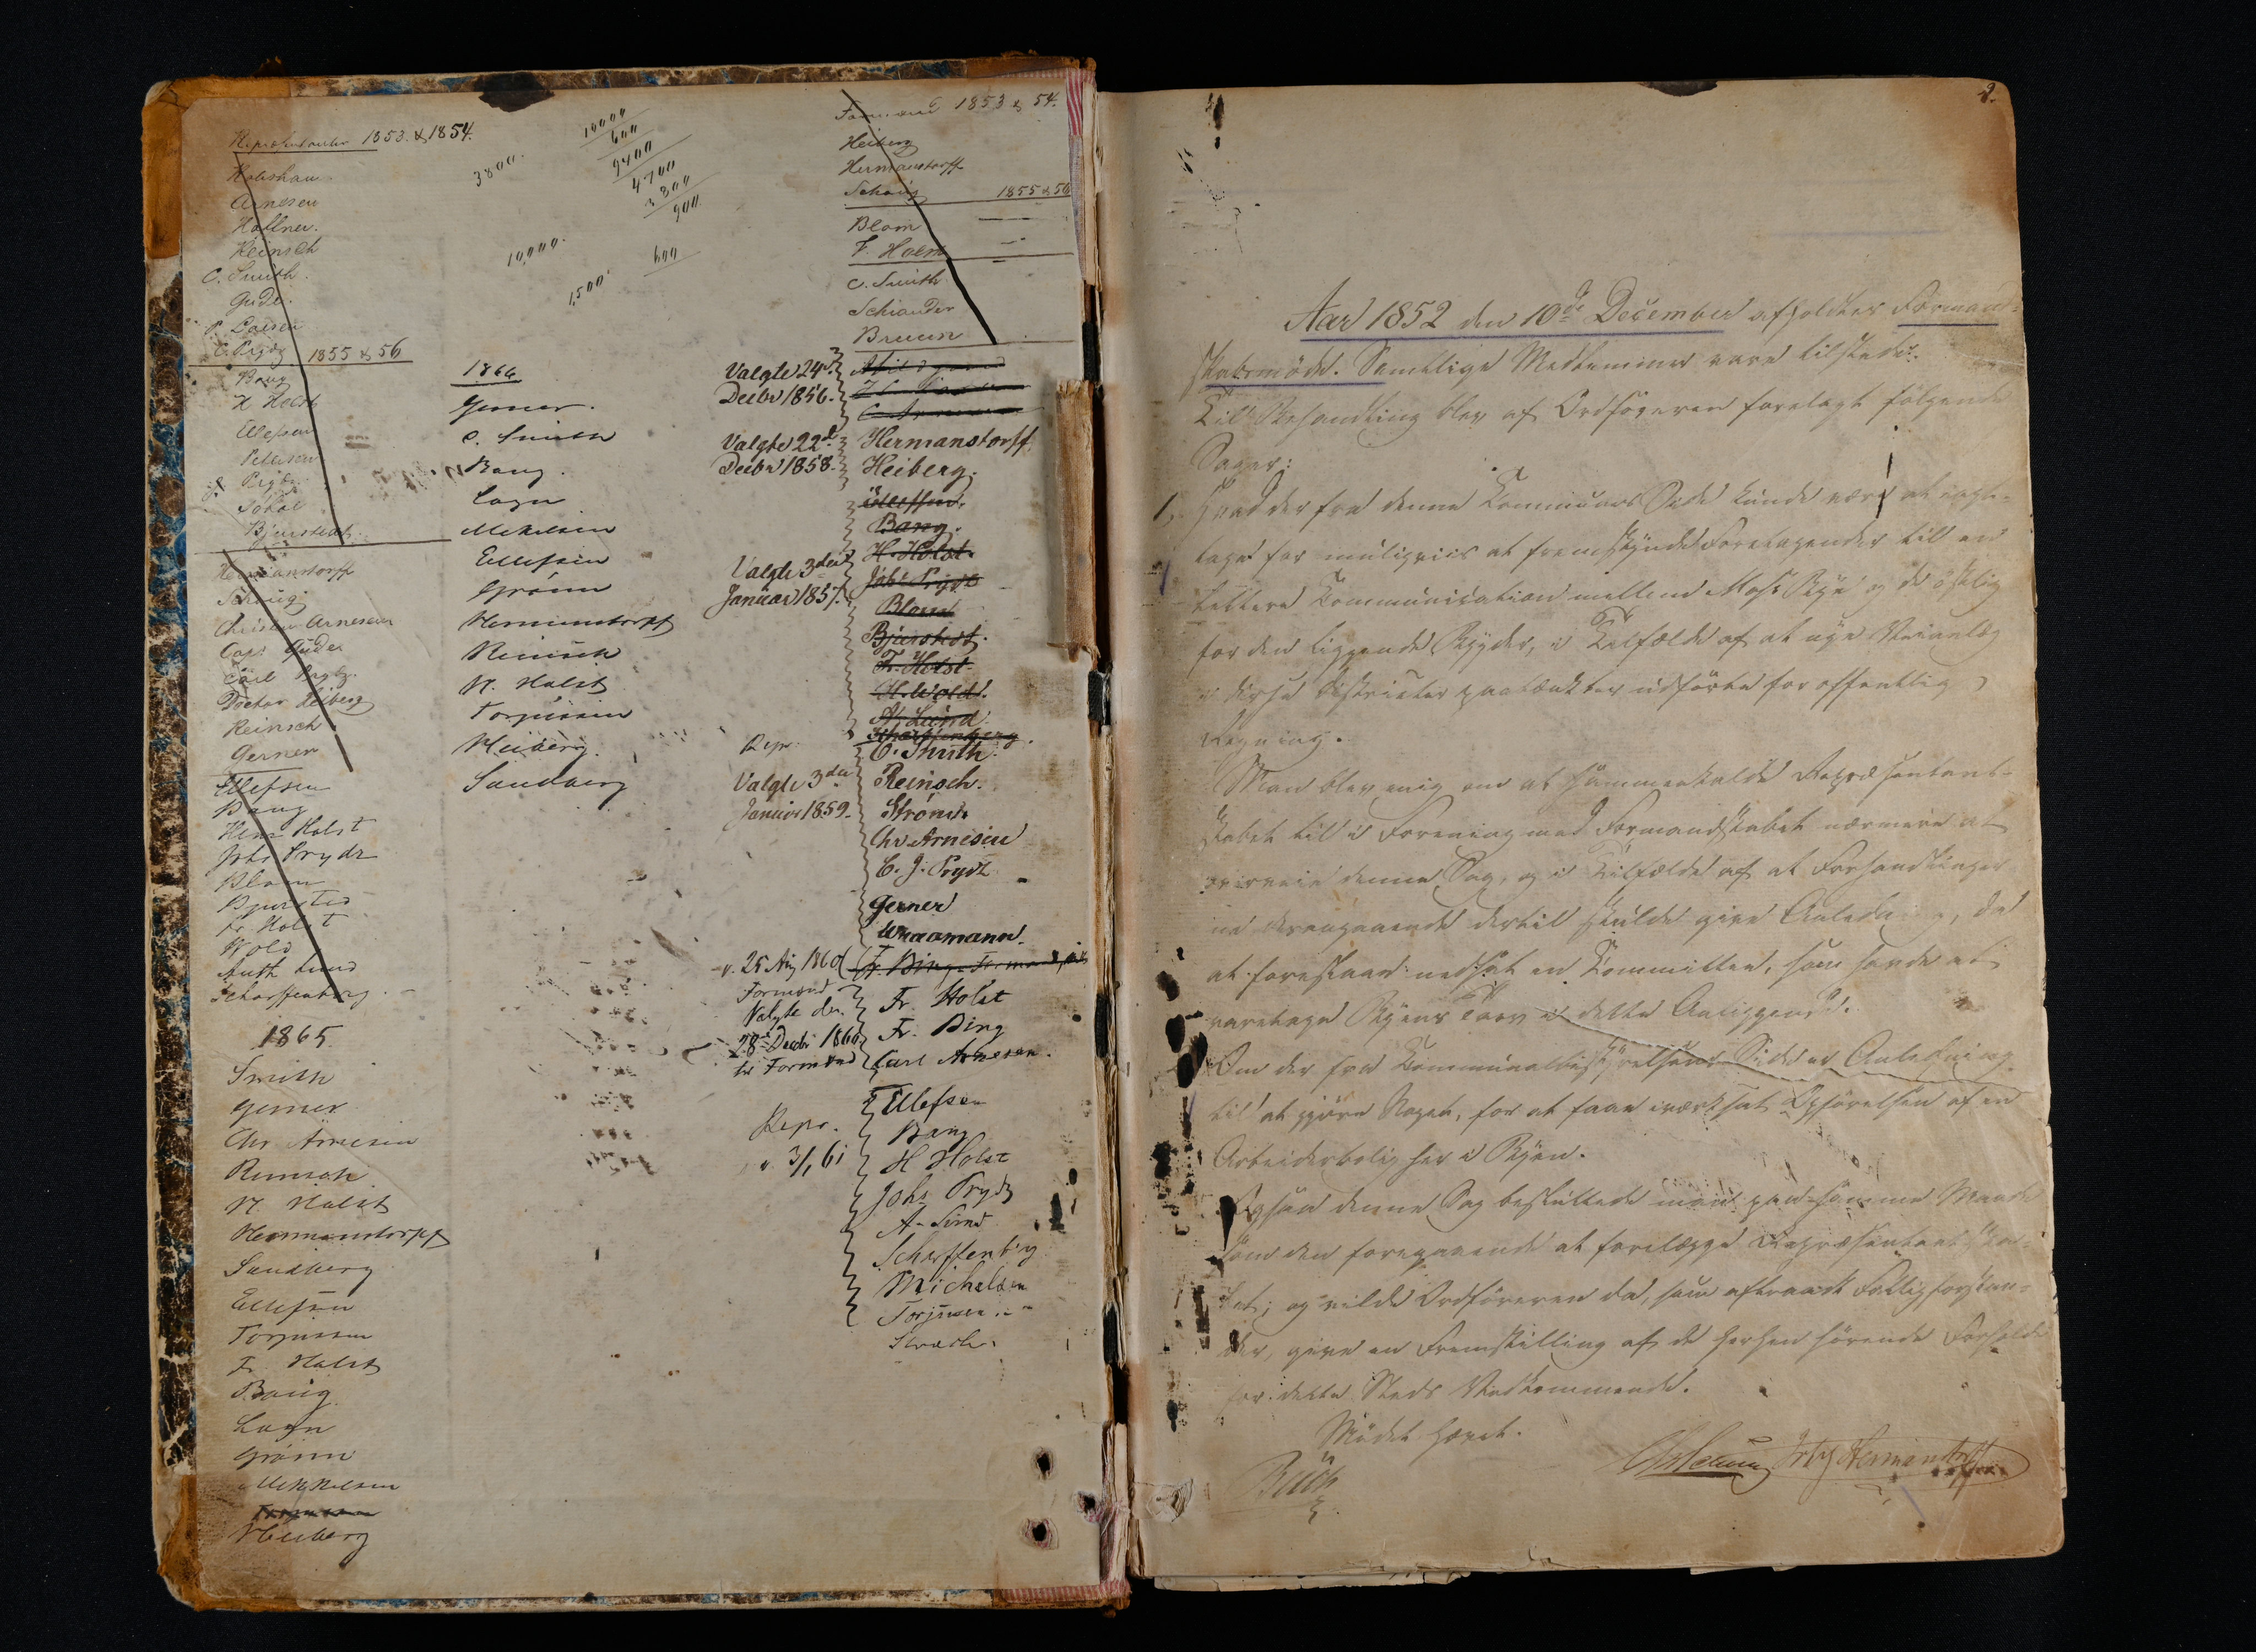 Repræsentanter 1853. & 1854.
Arnesen
Høltner.
Reinsch
C. Smith.
Gude.
P. Larsen
C. Prydz
1855 & 56
Bang
H Holst
Ellefsen
Petersen
Prydz
Bjursted
Hermanstorff
Schaug
Christian Arnesen
Cap: Gude
Carl Prydz.
Doctor Heiberg
Reinsch
Gerner
Ellefsen
Bang
Henr Holst
Johs Prydz
Blom
Bjursted
Fr. Holst
Wold
Anth Lund
Scharffenberg
1865
Smith
Gerner
Chr Arnesen
Reinsch
H. Holst
Hermanstorff
Sandberg
Ellefsen
Torjussen
Fr. Holst
Bang
Lagn
Grønn
Mekkelsen
Torjussen
Heiberg
10000
600
9400
4700
3800
900
3800.
10,000.
600
1,500
1866
Gerner.
C. Smith
Bang.
Lagn
Mekelsen
Ellefsen
Grønn
Hermanstorff
Reinsch
H. Holst
Torjussen
Heiberg.
Sandberg
Formænd 1853 & 54.
Heiberg
Hermanstorff
Schaug 1855 & 56
Blom
F. Holst
C. Smith
Schiander
Bruun
Valgte 24d.
Decbr 1856.
Valgte 22d. Hermanstorff
Decbr 1858. Heiberg.
Ellefsen.
Bang.
H. Holst.
Valgte 3die Johs Prydz
Januar 1857. Blom
Bjursted.
Fr. Holst.
H. Wold.
A. Lund.
Scharffenberg.
Repr. C. Smith.
Valgte 3die Reinsch.
Januar 1859. Strøm
Chr Arnesen
C. J. Prydz
Gerner
Wraamann.
v. 25 Aug 1860 Fr. Bing
Formænd Fr. Holst
Valgte den
28d Decbr 1860 Fr. Bing
til Formænd Carl Arnesen.
Ellefsen
Repr. Bang
v. 3/1 61 H Holst
Johs Prydz
A. Lund
Scharffenberg
Michelsen
Torjusen
2.
Aar 1852 den 10de December afholdtes Formand-
skabsmöde. Samtlige Medlemmer vare tilstede.
Til Behandling blev af Ordföreren forelagt følgende
Sager:
1, Hvad der fra denne Kommunes Side kunde være at iagt-
tage for muligviis at fremskynde Foretagender til en
lettere Kommunication mellem Moss Bye og de östlig
for den liggende Bygder, i Tilfælde af at nye Veianlæg
i disse Districter paatænktes udförte for offentlig
Regning.
Man blev enig om at sammenkalde Repræsentant-
skabet til i Forening med Formandskabet nærmere at
overveie denne Sag, og i Tilfælde af at Forhandlinger
ne desangaaende dertil skulde give Anledning, da
at foreslaae nedsat en Kommittee, som havde at
varetage Byens Tarv i dette Anliggende.
Om der fra Kommunalbestyrelsens Side er Anledning
til at gjøre Noget, for at faae iværksat Opförelsen af en
Arbeiderbolig her i Byen.
Ogsaa denne Sag besluttede man paa samme Maade
som den foregaaende at forelægge Repræsentantska-
bet; og vilde Ordföreren da, som afgaaet Fattigforstan-
der, give en Fremstilling af de herhen hörende Forholde
for dette Steds Vedkommende.
Mödet hævet.
Joh Hermanstorff